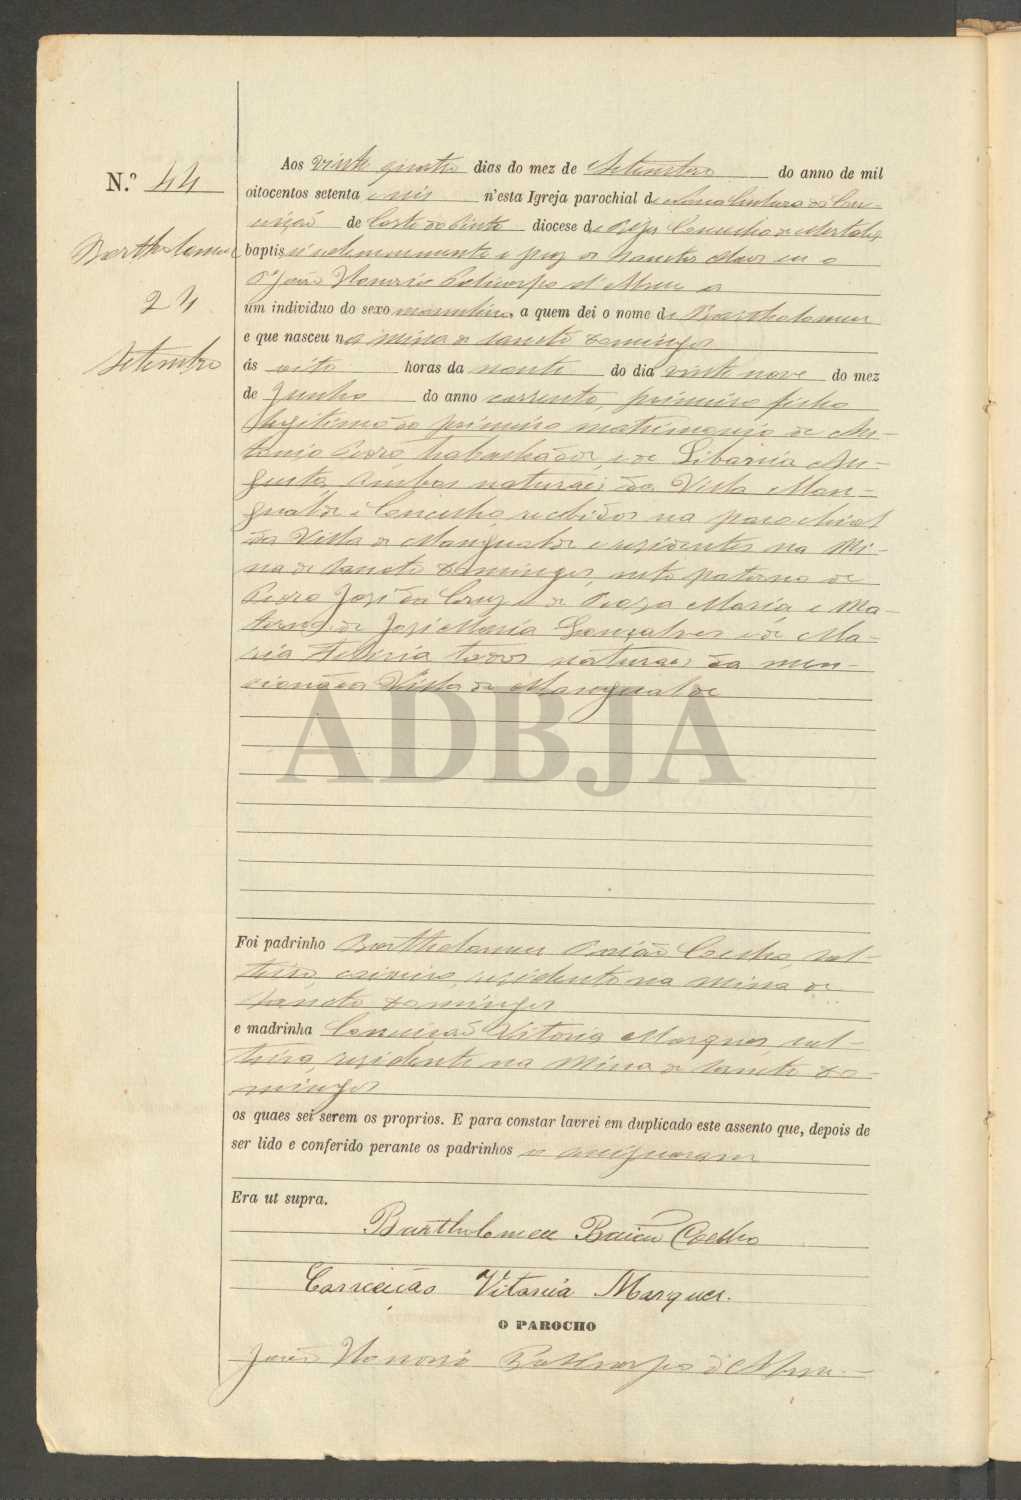 N.º 44
Bartholomeu
24
Setembro
Aos vinte quatro dias do mez de Setembro do anno de mil
oitocentos setenta e seis n'esta Igreja parochial de da Con-
ceição de Corte do Pinto diocese de Beja Concelho de Mertola
baptisei solemnemente e puz os Sanctos Oleos eu o
P.e João Honorio
um individuo do sexo masculino, a quem dei o nome de Bartholomeu
e que nasceu na Mina de Sancto Domingos
ás oito horas da noute do dia vinte nove do mez
de Junho do anno corrente, primeiro filho
legitimo do primeiro matrimonio de An-
tonio Pedro, trabalhador, e de Libania Au-
gusta, ambos naturaes da Villa Man-
gualde e Concelho, recebidos na parochial
da Villa de Mangualde e residentes na Mi-
na de Sancto Domingos, neto paterno de
Pedro José da Cruz e de Maria e Ma-
terno de José Maria Gonçalves e de Ma-
ria todos naturaes da men-
cionada Villa de Mangualde
ADBJA
Foi padrinho Bartholomeu Baião Coelho, sol-
teiro, caixeiro, residente na Mina de
Sancto Domingos
e madrinha Conceição Vitoria Marques, sol-
teira, residente na Mina de Sancto Do-
mingos
os quaes sei serem os proprios. E para constar lavrei em duplicado este assento que, depois de
ser lido e conferido perante os padrinhos o assignaram
Era ut supra.
Bartholomeu Baião Coelho
Conceição Vitoria Marques.
O PAROCHO
João Honorio